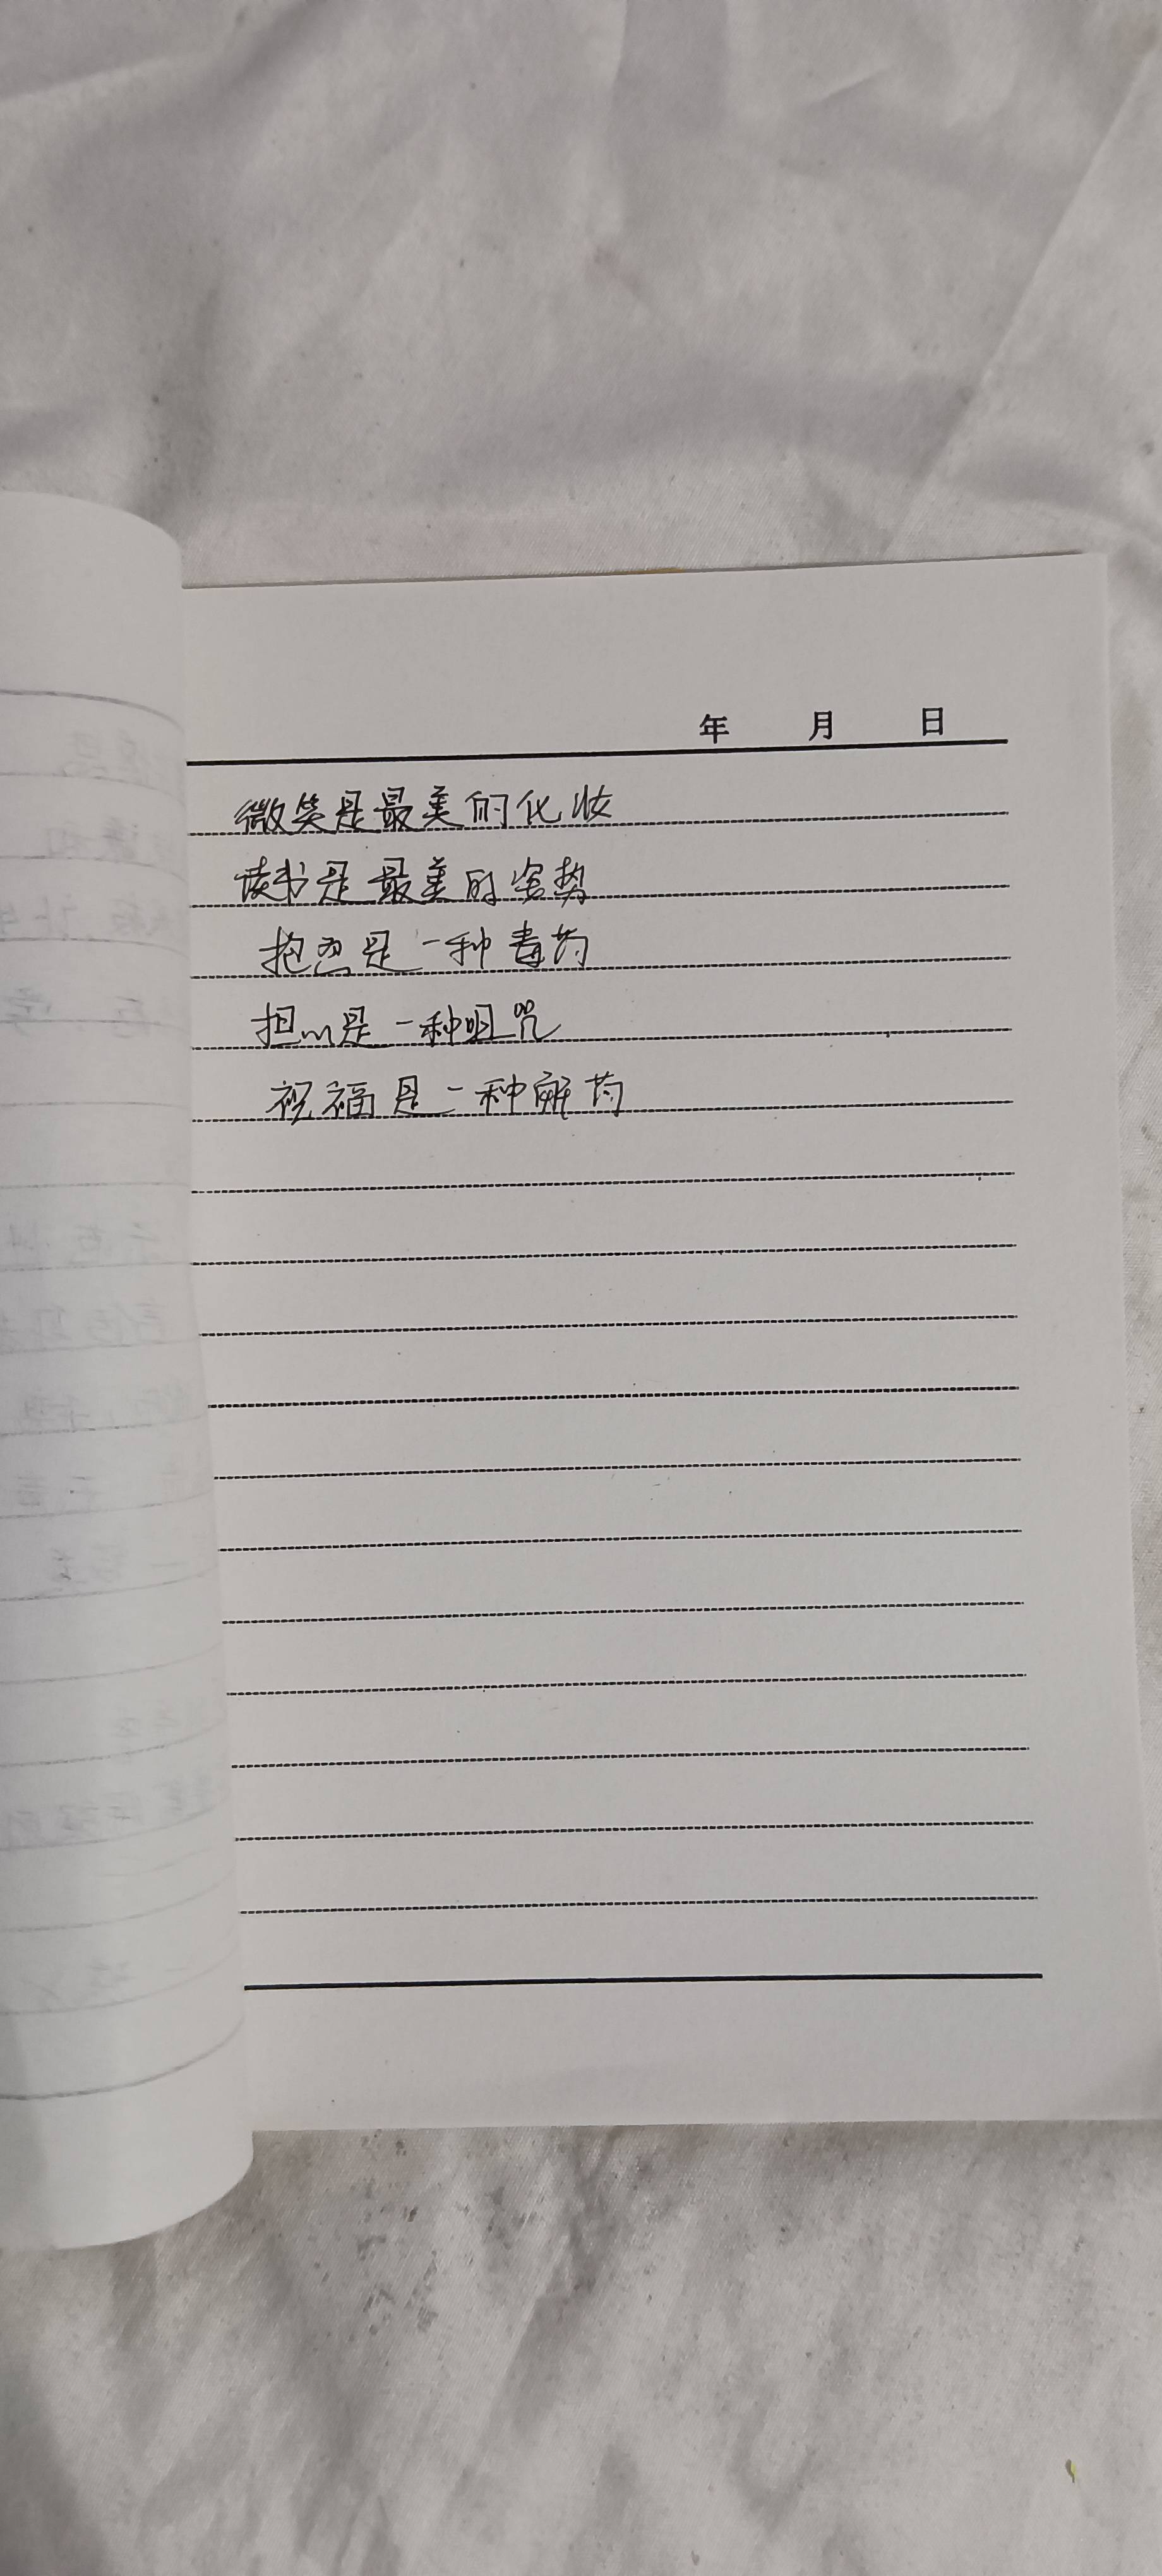 年 月 日
微笑是最美的化妆
读书是最美的姿势
抱怨是一种毒药
担心是一种咀咒
祝福是一种解药